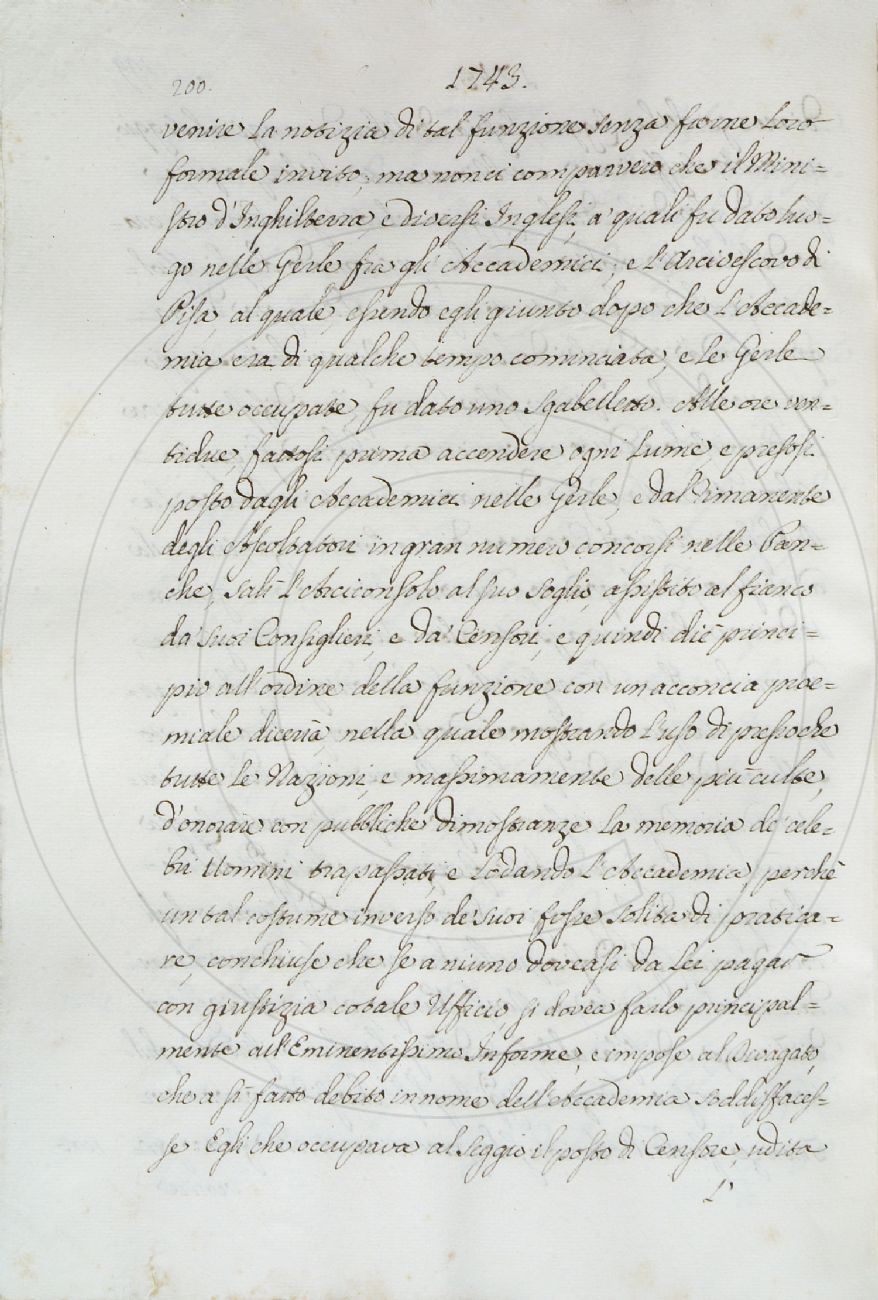 200.
1743.
venire la notizia di tal funzione senza farne loro
formale invito; ma non ci comparvero che il Mini=
stro d'Inghilterra, e diversi Inglesi, a' quali fu dato luo=
go nelle Gerle fra gli Accademici; e l'Arcivescovo di
Pisa, al quale essendo egli giunto dopo che l'Accade=
mia era di qualche tempo cominciata, e le Gerle
tutte occupate, fu dato uno sgabelletto. Alle ore ven=
tidue, fattosi prima accendere ogni lume, e presosi
posto dagli Accademici nelle Gerle, e dal rimanente
degli Ascoltatori in gran numero concorsi nelle Pan=
che, salì l'Arciconsolo al suo soglio, assistito al fianco
da' suoi Consiglieri, e da' Censori, e quindi diè princi=
pio all'ordine della funzione con un acconcia proe=
miale diceria, nella quale mostrando l'uso di pressochè
tutte le Nazioni, e massimamente delle più culte,
d'onorare con pubbliche dimostranze la memoria de' cele=
bri Uomini trapassati e lodando l'Accademia, perchè
un tal costume inverso de' suoi fosse solita di pratica=
re, conchiuse che se a niuno doveasi da lei pagar
con giustizia cotale Ufficio si dovea farlo principal=
mente all'Eminentissimo Informe, e impose al Divagato,
che a sì fatto debito in nome dell'Accademia soddisfaces=
se Egli che occupava al seggio il posto di Censore, udita
l'